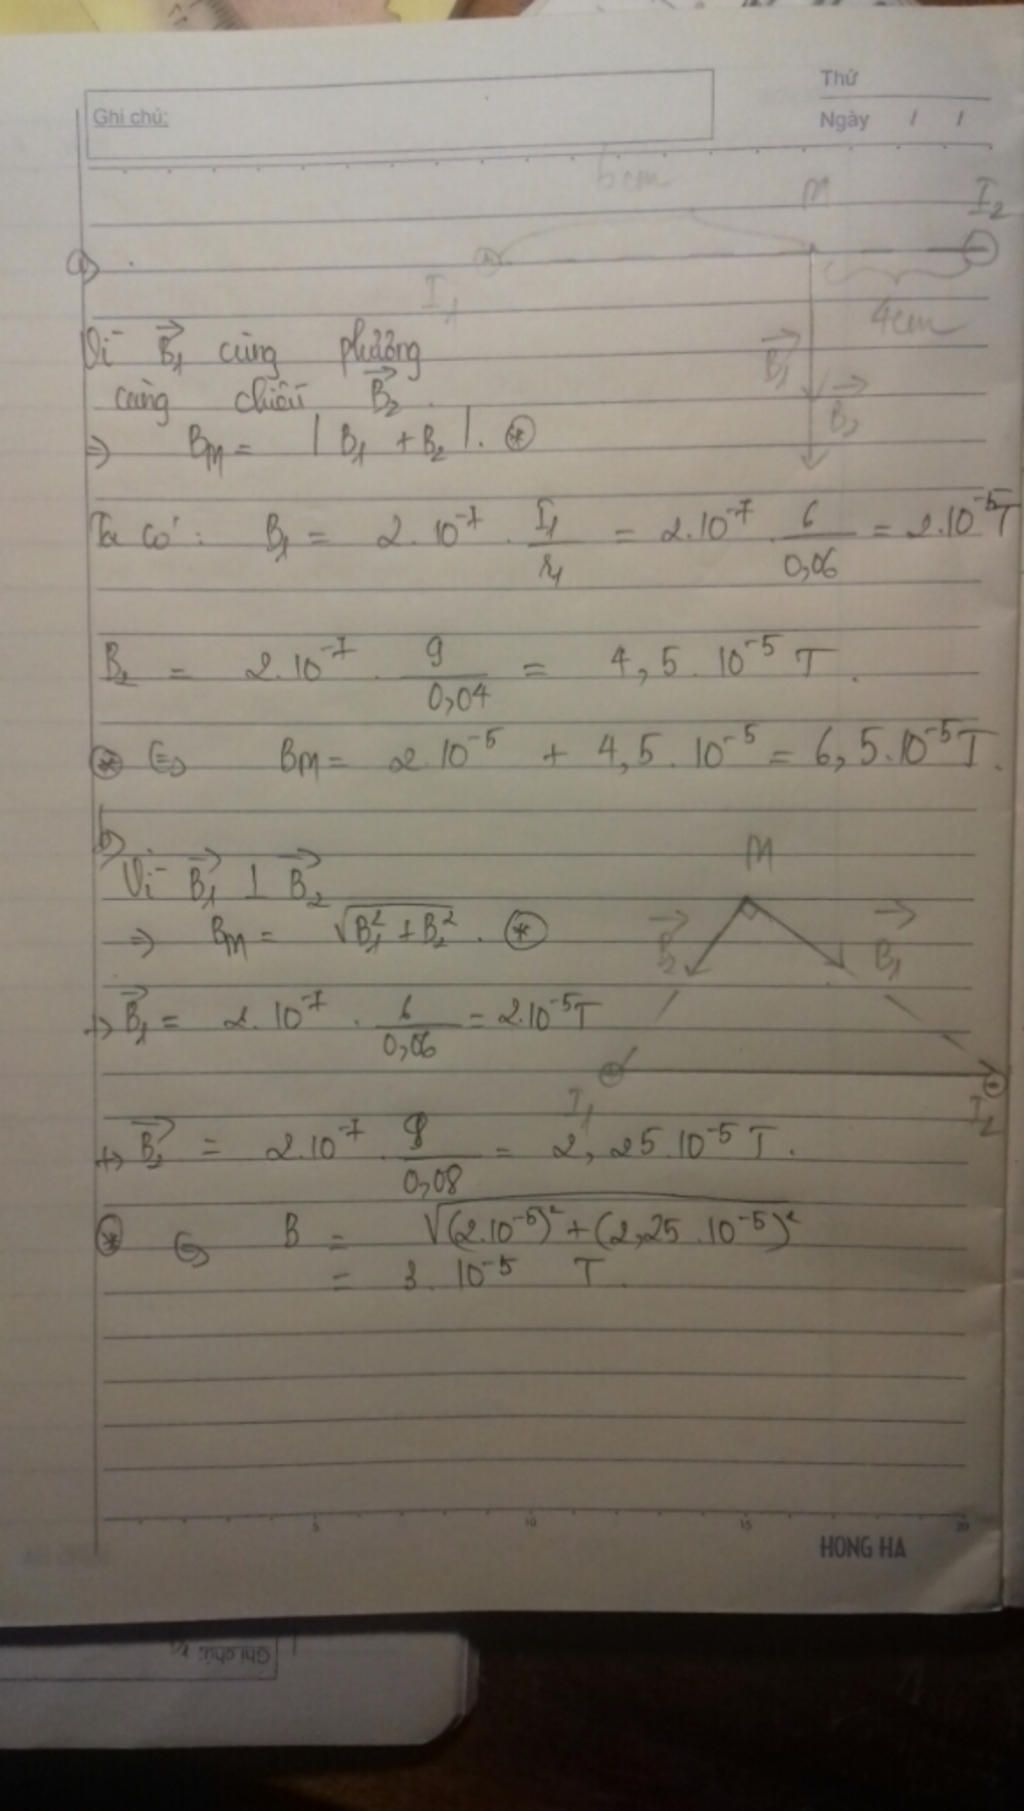 Ghi chú:
Thứ
Ngày / /
6cm M I₂
a)
I₁
4cm
Vì B₁→ cùng phương
cùng chiều B₂→.
B₁→
B₂→
=> BM = | B₁ + B₂ |. ⊛
Ta có: B₁ = 2.10⁻⁷ . I₁/r₁ = 2.10⁻⁷ . 6/0,06 = 2.10⁻⁵T
B₂ = 2.10⁻⁷ . 9/0,04 = 4,5.10⁻⁵ T.
⊛ <=> BM = 2.10⁻⁵ + 4,5.10⁻⁵ = 6,5.10⁻⁵T.
b)
M
Vì B₁→ ⊥ B₂→
=> BM = √(B₁² + B₂²). ⊛
B₂→ B₁→
+> B₁→ = 2.10⁻⁷ . 6/0,06 = 2.10⁻⁵T
I₁ I₂
+> B₂→ = 2.10⁻⁷ . 9/0,08 = 2,25.10⁻⁵ T.
⊛ <=> B = √((2.10⁻⁵)² + (2,25.10⁻⁵)²
= 3.10⁻⁵ T.
5 10 15 20
HONG HA
Ghi chú: